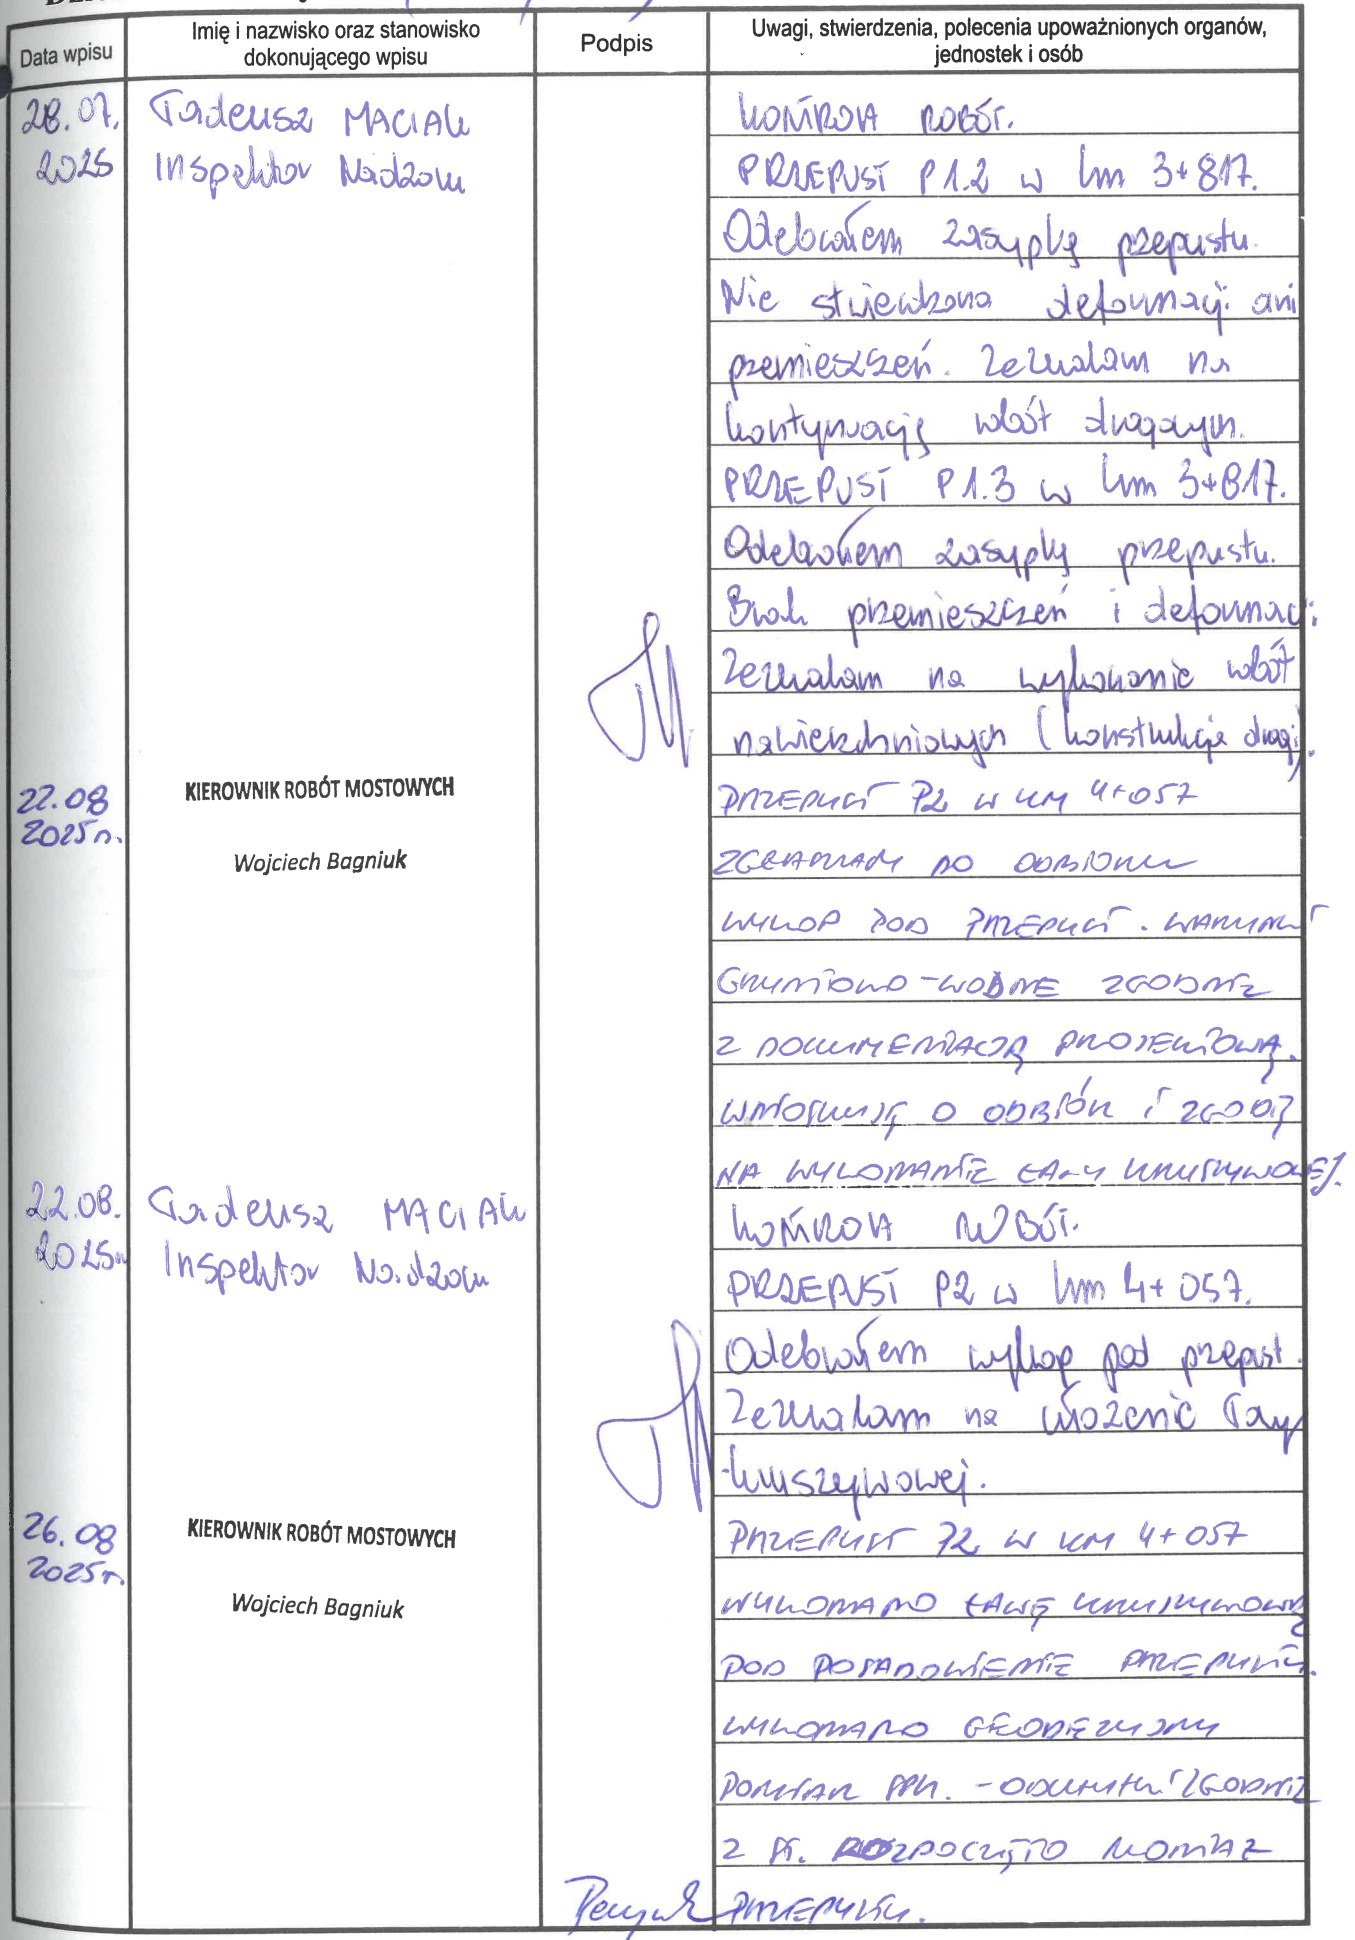 Data wpisu
Imię i nazwisko oraz stanowisko
dokonującego wpisu
Podpis
Uwagi, stwierdzenia, polecenia upoważnionych organów,
jednostek i osób
28.07.
2025
Tadeusz MACIAK
Inspektor Nadzoru
KONTROLA ROBÓT.
PRZEPUST P1.2 w km 3+817.
Odebrałem zasypkę przepustu.
Nie stwierdzono deformacji ani
przemieszczeń. Zezwalam na
kontynuację robót drogowych.
PRZEPUST P1.3 w km 3+817.
Odebrałem zasypkę przepustu.
Brak przemieszczeń i deformacji
Zezwalam na wykonanie robót
nawierzchniowych (konstrukcja drogi).
22.08
2025r.
KIEROWNIK ROBÓT MOSTOWYCH
Wojciech Bagniuk
PRZEPUST P2 W KM 4+057
ZGŁASZAM DO ODBIORU
WYKOP POD PRZEPUST. WARUNKI
GRUNTOWO-WODNE ZGODNIE
Z DOKUMENTACJĄ PROJEKTOWĄ.
WNIOSKUJĘ O ODBIÓR I ZGODĘ
NA WYKONANIE ŁAWY KRUSZYWOWEJ.
22.08.
2025r
Tadeusz MACIAK
Inspektor Nadzoru
KONTROLA ROBÓT.
PRZEPUST P2 w km 4+057.
Odebrałem wykop pod przepust.
Zezwalam na ułożenie ławy
kruszywowej.
26.08
2025r.
KIEROWNIK ROBÓT MOSTOWYCH
Wojciech Bagniuk
PRZEPUST P2 W KM 4+057
WYKONANO ŁAWĘ KRUSZYWOWĄ
POD POSADOWIENIE PRZEPUSTU.
WYKONANO GEODEZYJNY
POMIAR - ZGODNIE
Z PT. ROZPOCZĘTO MONTAŻ
PRZEPUSTU.